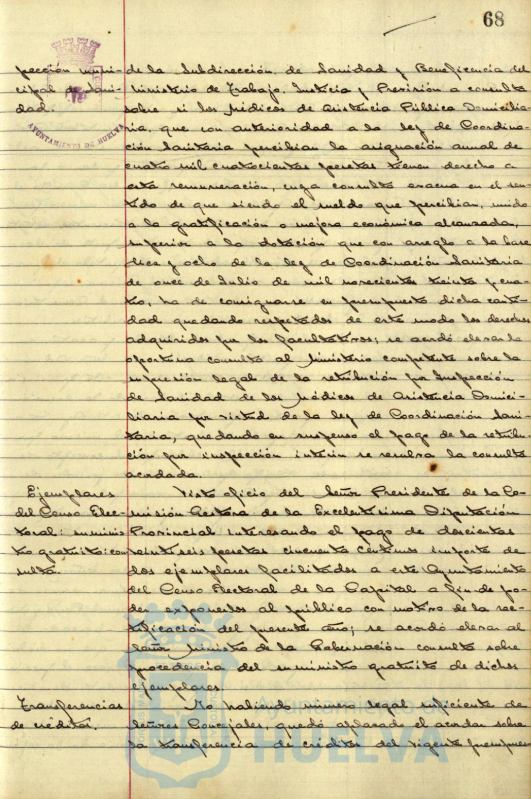 68
pección muni-
cipal de Sani-
dad.
AYUNTAMIENTO DE HUELVA
de la Subdirección de Sanidad y Beneficencia del
Ministerio de Trabajo, Justicia y Previsión a consulta
sobre si los Médicos de Asistencia Pública Domicilia-
ria, que con anterioridad a la ley de Coordina-
ción Sanitaria percibian la asignación anual de
cuatro mil cuatrocientas pesetas tienen derecho a
esta remuneración, cuya consulta evacua en el sen-
tido de que siendo el sueldo que percibian, unido
a la gratificación o mejora económica alcanzada,
superior a la dotación que con arreglo a la base
diez y ocho de la ley de Coordinación Sanitaria
de once de Julio de mil novecientos treinta y cua-
tro, ha de consignarse en presupuesto dicha canti-
dad quedando respetados de este modo los derechos
adquiridos por los facultativos; se acordó elevar la
oportuna consulta al Ministerio competente sobre la
supresión legal de la retribución por Inspección
de Sanidad de los Médicos de Asistencia Domici-
liaria por virtud de la ley de Coordinación Sani-
taria, quedando en suspenso el pago de la retribu-
ción por inspección interin se resuelva la consulta
acordada.
Ejemplares
del Censo Elec-
toral: suminis-
tro gratuito: con-
sulta.
Visto oficio del Señor Presidente de la Co-
misión Gestora de la Excelentísima Diputación
Provincial interesando el pago de doscientas
veintiseis pesetas cincuenta centimos importe de
dos ejemplares facilitados a este Ayuntamiento
del Censo Electoral de la Capital a fin de po-
der exponerlos al público con motivo de la rec-
tificación del presente año; se acordó elevar al
Señor Ministro de la Gobernación consulta sobre
procedencia del suministro gratuito de dichos
ejemplares.
Transferencias
de créditos.
No habiendo número legal suficiente de
Señores Concejales, quedó aplazado el acordar sobre
la transferencia de créditos del vigente presupues
Ayuntamiento de
HUELVA